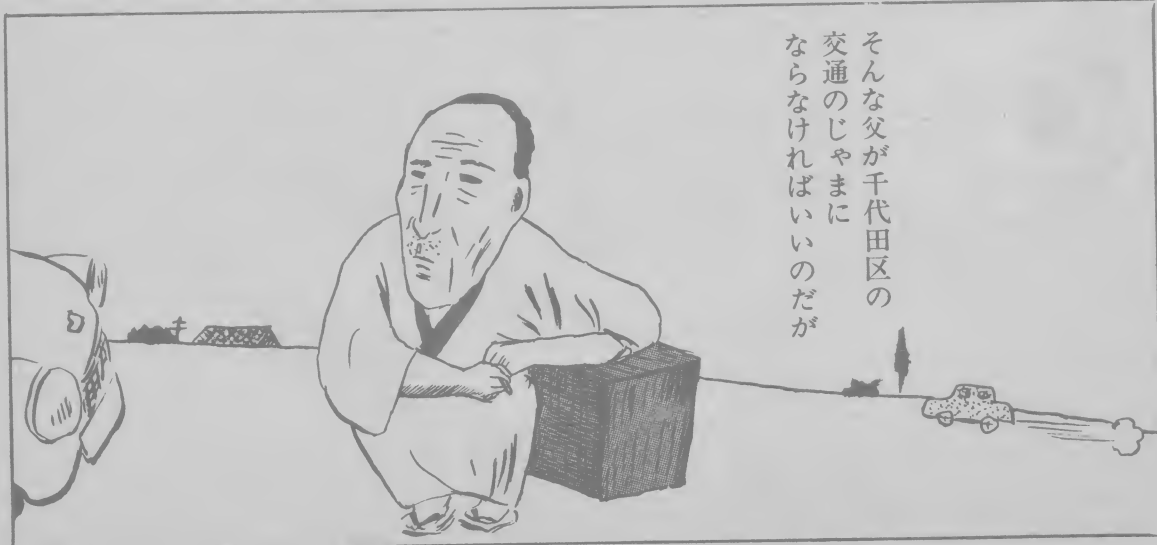 そんな父が千代田区の
交通のじゃまに
ならなければいいのだが